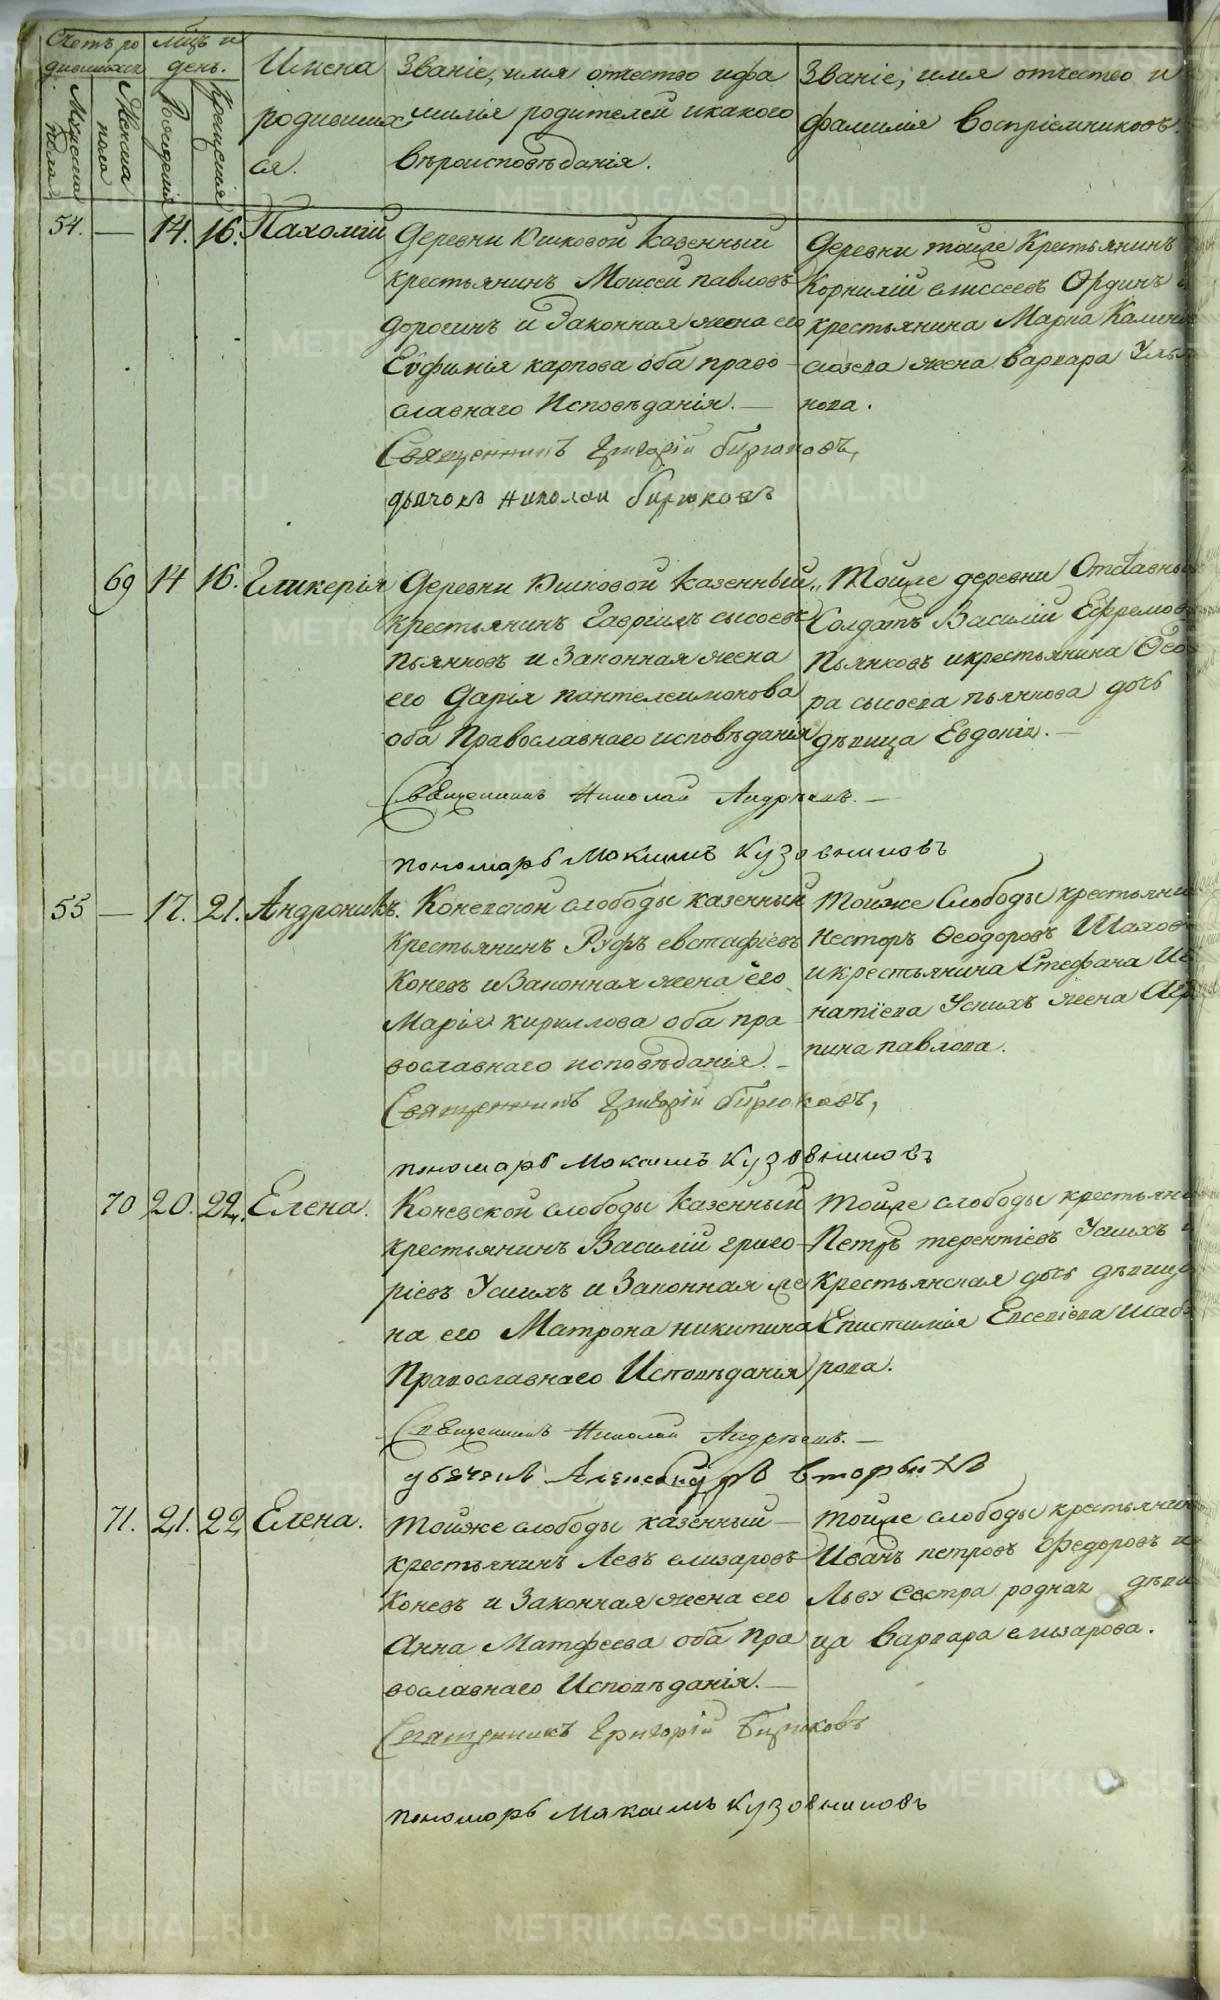 Счетъ ро
дившихся
Мужеска
пола
Женска
пола
Мѣцъ и
день.
Рожденія
Крещенія
Имена
родивших
ся.
Званіе, имя отчество и фа
милія родителей и какого
вѣроисповѣданія.
Званіе, имя отчество и
фамилія воспріемниковъ.
54. — 14. 16. Пахомій
Деревни Юшковой казенный
крестьянинъ Моисей павловъ
Дорогинъ и Законная жена его
Евфимія карпова оба право
славнаго Исповѣданія. —
Священникъ Григорій Бирюковъ,
дьячокъ Николай Бирюковъ
Деревни тойже Крестьянинъ
Корнилій елиссеевъ Ординъ и
крестьянина Марка
жена варвара
нова.
69 14 16. Гликерія
Деревни Юшковой казенный
крестьянинъ Гавріилъ сысоевъ
Пьянковъ и Законная жена
его Дарія пантелеимонова
оба Православнаго исповѣданія
Священникъ Николай Андреевъ. —
пономарь Максимъ Кузовниковъ
Тойже деревни Отставный
Солдатъ Василій Ефремовъ
Пьянковъ и крестьянина Ѳедо
ра сысоева пьянкова дочь
дѣвица Евдокія. —
55 — 17. 21. Андроникъ.
Коневской слободы казенный
Крестьянинъ Руфъ евстафіевъ
Коневъ и Законная жена его
Марія кириллова оба пра
вославнаго исповѣданія. —
Священникъ Григорій Бирюковъ,
пономарь Максимъ Кузовниковъ
Тойже Слободы крестьянин
Несторъ Ѳеодоровъ Шахов
и крестьянина Стефана Иг
натіева Усихъ жена Агр
пина павлова.
70 20. 22. Елена.
Коневской слободы казенный
крестьянинъ Василій григо
ріевъ Усихъ и Законная же
на его Матрона никитина
Православнаго Исповѣданія
Священникъ Николай Андреевъ. —
дьячекъ Александръ Вторыхъ
тойже слободы крестьяни
Петръ терентіевъ Усихъ и
Крестьянская дочь дѣвица
Епистимія Евсевіева Шаб
рова.
71. 21. 22 Елена.
Тойже слободы казенный —
крестьянинъ Левъ елизаровъ
Коневъ и Законная жена его
Анна Матфеева оба пра
вославнаго Исповѣданія. —
Священникъ Григорій Бирюковъ
пономарь Максимъ Кузовниковъ
тойже слободы крестьянин
Иванъ петровъ Федоровъ и
Льву Сестра родная дѣви
ца варвара елизарова.
METRIKI.GASO-URAL.RU